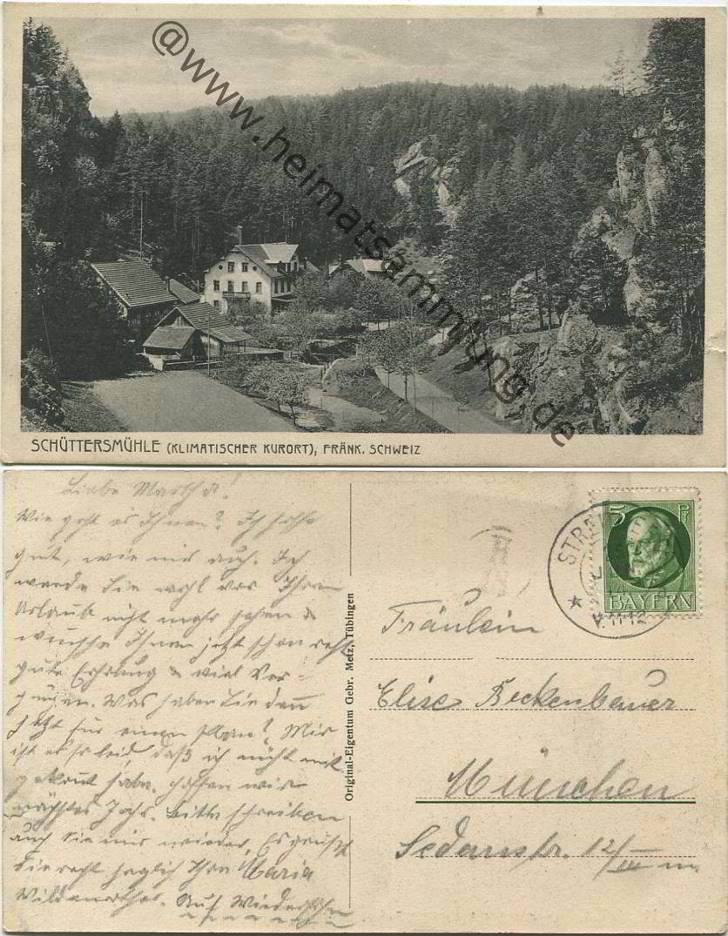 @www.heimatsammlung.de
SCHÜTTERSMÜHLE (KLIMATISCHER KURORT), FRÄNK. SCHWEIZ
Liebe Martha!
Wie geht es Ihnen? Ich hoffe
gut, wie mir auch. Ich
werde Sie wohl vor Ihrem
Urlaub nicht mehr sehen &
wünsche Ihnen jetzt schon recht
gute Erholung & viel Ver-
gnügen. Was haben Sie denn
jetzt für einen Plan? Mir
ist es so leid daß ich nicht mit
gekonnt habe. Hoffen wir
nächstes Jahr. Bitte schreiben
auch Sie mir wieder. Es grüßt
Sie recht herzlich Ihre Maria
Auf Wiedersehen
Original-Eigentum Gebr. Metz, Tübingen
5 Pf
BAYERN
Fräulein
Elise Beckenbauer
München
Sedanstr. 12/III